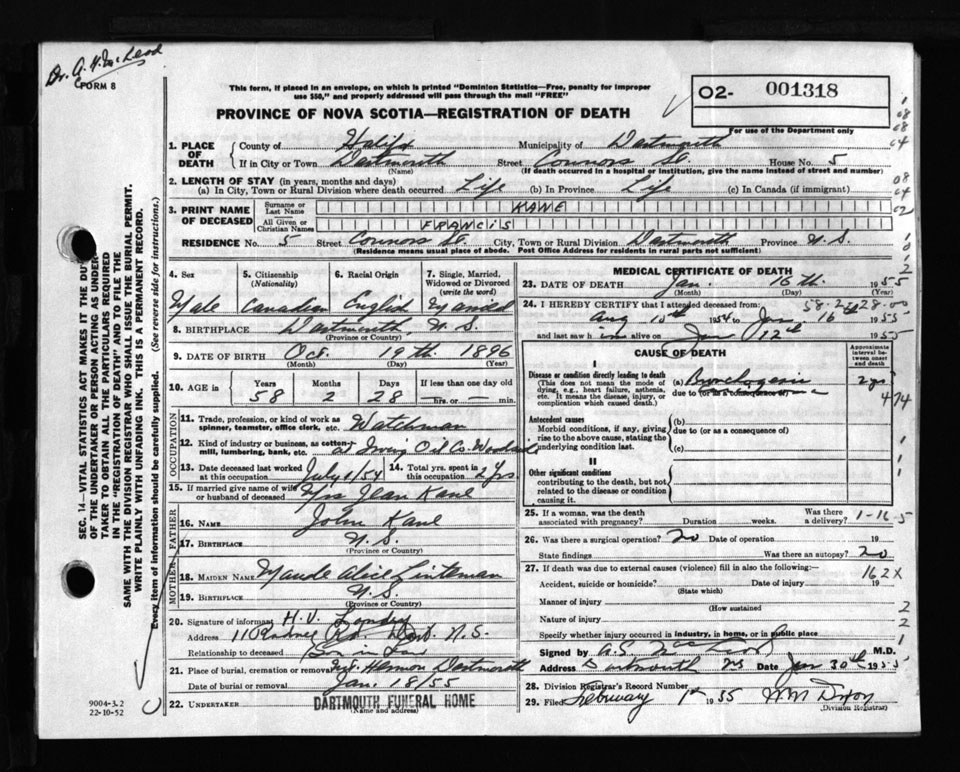 Dr. A. S. McLeod
FORM 8
This form, if placed in an envelope, on which is printed "Dominion Statistics—Free, penalty for improper
use $50," and properly addressed will pass through the mail "FREE"
PROVINCE OF NOVA SCOTIA—REGISTRATION OF DEATH
02- 001318
For use of the Department only
1. PLACE OF DEATH
County of Halifax Municipality of Dartmouth
If in City or Town Dartmouth Street Connors St. House No. 5
(Name) (If death occurred in a hospital or institution, give the name instead of street and number)
2. LENGTH OF STAY (in years, months and days)
(a) In City, Town or Rural Division where death occurred Life (b) In Province Life (c) In Canada (if immigrant)
3. PRINT NAME OF DECEASED
Surname or Last Name KANE
All Given or Christian Names FRANCIS
RESIDENCE No. 5 Street Connors St. City, Town or Rural Division Dartmouth Province N.S.
(Residence means usual place of abode. Post Office Address for residents in rural parts not sufficient)
4. Sex 5. Citizenship (Nationality) 6. Racial Origin 7. Single, Married, Widowed or Divorced (write the word)
Male Canadian English Married
8. BIRTHPLACE Dartmouth, N.S.
(Province or Country)
9. DATE OF BIRTH Oct. 19th 1896
(Month) (Day) (Year)
10. AGE in Years Months Days If less than one day old
58 2 28 hrs. or min.
OCCUPATION
11. Trade, profession or kind of work as
spinner, teamster, office clerk, etc. Watchman
12. Kind of industry or business, as cotton-
mill, lumbering, bank, etc. at Irving Oil Co.
13. Date deceased last worked at this occupation July 1/54 14. Total yrs. spent in this occupation 2 yrs
15. If married give name of wife or husband of deceased Mrs Jean Kane
FATHER
16. NAME John Kane
17. BIRTHPLACE N.S.
(Province or Country)
MOTHER
18. MAIDEN NAME Maude Alice
19. BIRTHPLACE N.S.
(Province or Country)
20. Signature of informant H.V.
Address Rd. Dart. N.S.
Relationship to deceased Son in Law
21. Place of burial, cremation or removal Mt. Hermon Dartmouth
Date of burial or removal Jan. 18/55
22. UNDERTAKER DARTMOUTH FUNERAL HOME
(Name and Address)
MEDICAL CERTIFICATE OF DEATH
23. DATE OF DEATH Jan. 16th. 1955
(Month) (Day) (Year)
58-2-28-00
24. I HEREBY CERTIFY that I attended deceased from:
Aug 10th 1954 to Jan 16th 1955
and last saw him alive on Jan 12th 1955
CAUSE OF DEATH
Approximate interval between onset and death
I
Disease or condition directly leading to death
(This does not mean the mode of dying, e.g., heart failure, asthenia, etc. It means the disease, injury, or complication which caused death.)
(a) 2 yrs
due to (or as a consequence of)
474
Antecedent causes
Morbid conditions, if any, giving rise to the above cause, stating the underlying condition last.
(b)
due to (or as a consequence of)
(c)
II
Other significant conditions
contributing to the death, but not related to the disease or condition causing it.
25. If a woman, was the death associated with pregnancy? Duration weeks. Was there a delivery?
26. Was there a surgical operation? no Date of operation 19
State findings Was there an autopsy? no
27. If death was due to external causes (violence) fill in also the following:—
162X
Accident, suicide or homicide? Date of injury 19
(State which)
Manner of injury
(How sustained)
Nature of injury
Specify whether injury occurred in industry, in home, or in public place
Signed by A.S. McLeod M.D.
Address Dartmouth NS Date Jan 30th 1955
28. Division Registrar's Record Number
29. Filed February 1st 1955
(Division Registrar)
SEC. 14—VITAL STATISTICS ACT MAKES IT THE DUTY
OF THE UNDERTAKER OR PERSON ACTING AS UNDER-
TAKER TO OBTAIN ALL THE PARTICULARS REQUIRED
IN THE "REGISTRATION OF DEATH" AND TO FILE THE
SAME WITH THE DIVISION REGISTRAR WHO SHALL ISSUE THE BURIAL PERMIT.
WRITE PLAINLY WITH UNFADING INK. THIS IS A PERMANENT RECORD.
Every item of information should be carefully supplied. (See reverse side for instructions.)
9004-3.2
22-10-52